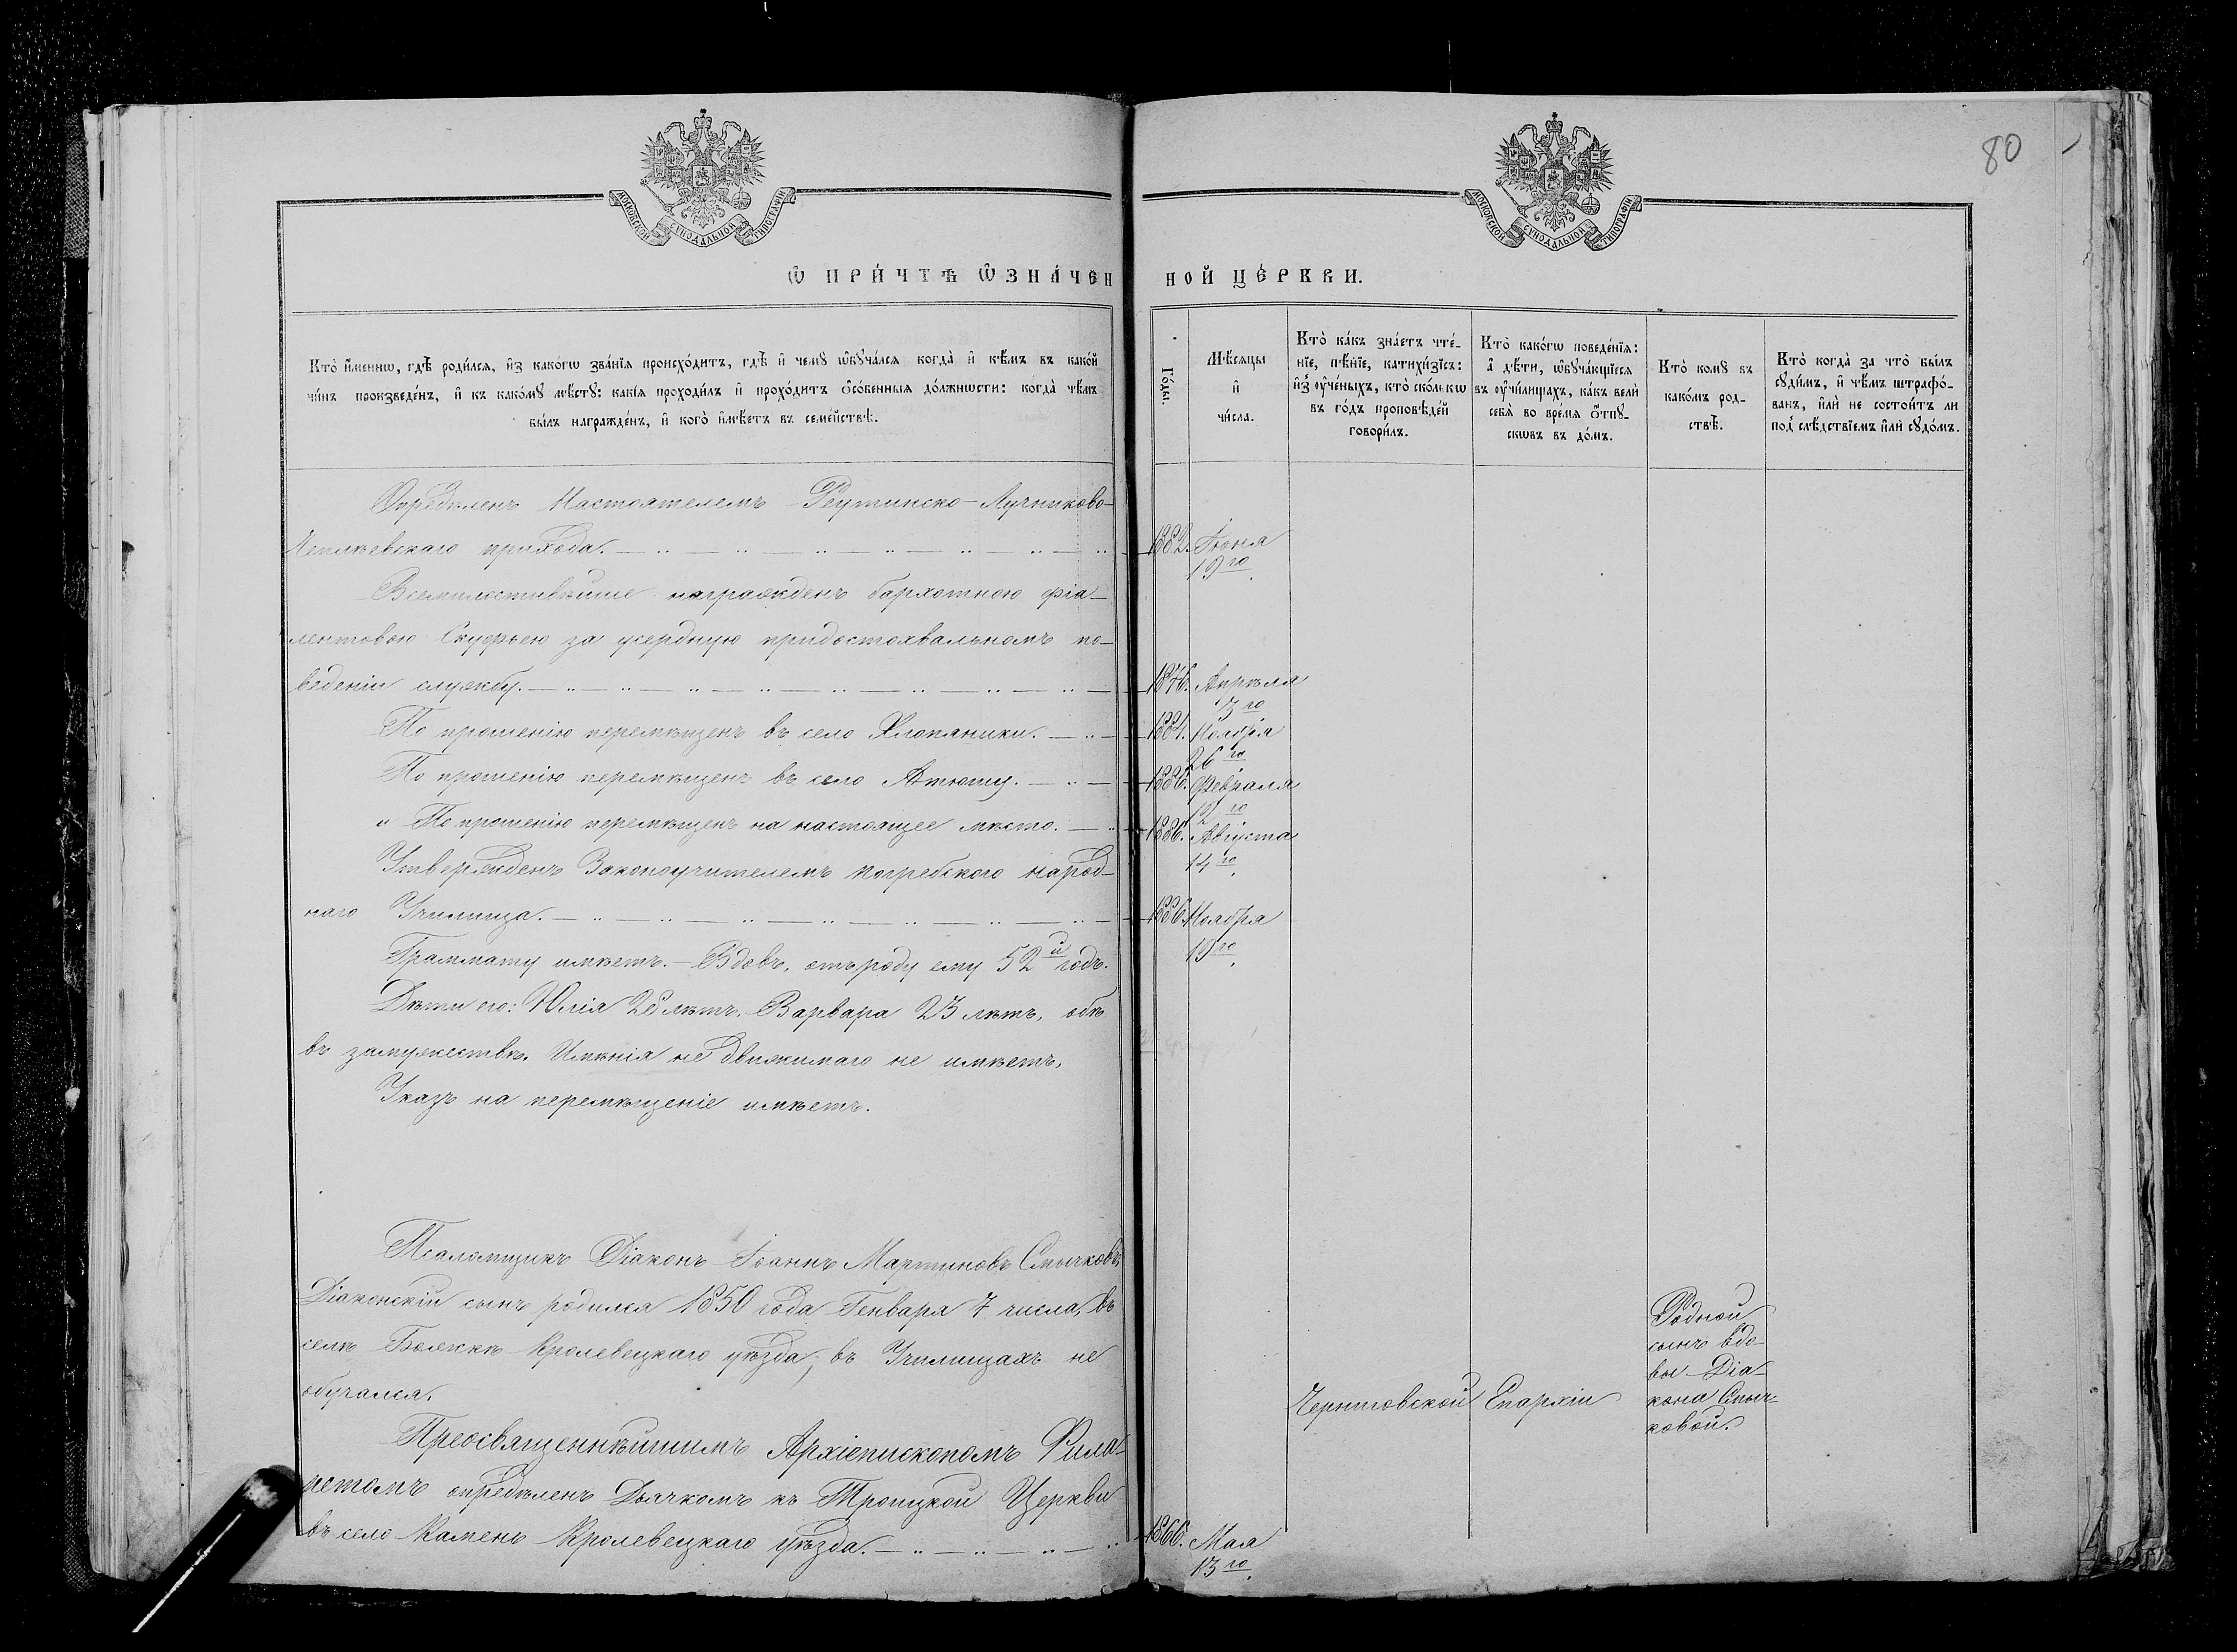 80
МОСКОВСКОЙ СѴНОДАЛЬНОЙ ТИПОГРАФІИ
МОСКОВСКОЙ СѴНОДАЛЬНОЙ ТИПОГРАФІИ
Ѽ ПРИ́ЧТѢ ѾЗНА́ЧЕННОЙ ЦЕ́РКВИ.
Кто̀ и҆́менню, гдѣ̀ роди́лсѧ, и҆з̾ како́гѡ зва́нїѧ происхо́дитъ, гдѣ̀ и҆ чемꙋ̀ ѡ҆бꙋча́лсѧ когда̀ и҆ кѣ́мъ въ како́й
чи́нъ произведе́нъ, и҆ къ како́мꙋ мѣ́стꙋ: какі̑ѧ проходи́лъ и҆ прохо́дитъ ѻ҆со́бенныѧ до́лжнѡсти: когда̀ чѣ́мъ
бы́лъ награжде́нъ, и҆ кого̀ и҆мѣ́етъ въ семе́йствѣ.
Го́ды.
Мѣ́сѧцы
и҆
чи́сла.
Кто̀ ка́къ зна́етъ чте́-
нїе, пѣ́нїе, катихи́зїсъ:
и҆з̾ ᲂу҆че́ныхъ, кто̀ ско́лькѡ
въ го́дъ проповѣ́дей
говори́лъ.
Кто̀ како́гѡ поведе́нїѧ:
а҆ дѣ́ти, ѡ҆бꙋча́ющїесѧ
въ ᲂу҆чи́лищахъ, ка́къ велѝ
себѧ̀ во времѧ ѻ҆́тпꙋ-
скѡвъ въ до́мъ.
Кто̀ комꙋ̀ въ
како́мъ род-
ствѣ̀.
Кто̀ когда̀ за что̀ бы́лъ
сꙋди́мъ, и҆ чѣ́мъ штрафо́-
ванъ, и҆лѝ не состои́тъ ли
под̾ слѣ́дствїемъ и҆лѝ сꙋдо́мъ.
Опредѣленъ Настоятелемъ Реутинско-Лучниково-
приход̾а. 1882. Іюня
19го.
Всемилостивѣйше награжденъ бархотною фіа-
лентовою Скуфьею за усердную придостохвальномъ по-
веденіи службу. 1876. Апрѣля
13го
По прошенію перемѣщенъ въ село Хлопяники. 1881. Ноября
26го.
По прошенію перемѣщенъ въ село Атюшу. 1886. Февраля
12го.
По прошенію перемѣщенъ на настоящее мѣсто. 1886. Августа
14го.
Утвержденъ Законоучителемъ Погребского народ-
наго Училища. 1886. Ноября
19го.
Граммату имѣетъ.- Вдовъ, отъ роду ему 52й годъ.
Дѣти его: Юлія 26 лѣтъ. Варвара 23 лѣтъ, обѣ
въ замужествѣ. Имѣнія не движимаго не имѣетъ.
Указъ на перемѣщеніе имѣетъ.
Псаломщикъ Діаконъ Іоаннъ Мартиновъ Смычковъ,
Діаконскій сынъ родился 1850 года Генваря 7 числа, въ
селѣ Божкѣ Кролевецкаго уѣзда; въ Училищахъ не
обучался.
Черниговской Епархіи
Родной
сынъ вдо-
вы Діа-
кона Смыч-
ковой.
Преосвященнѣйшимъ Архіепископомъ Фила-
ретомъ опредѣленъ Дьячкомъ къ Троицкой Церкви
въ село Камень Кролевецкаго уѣзда. 1866. Мая
13го.